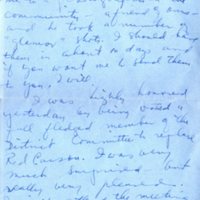 community, a friend
and he took a number
"glamor" shots. I should have
them in about 10 days and
if you want me to send them
to you, I will.
I was highly honored
yesterday on being voted a
full fledged member of the
District Committee to replace
Red Carson. I was very
much surprised but
really very pleased.
the meeting